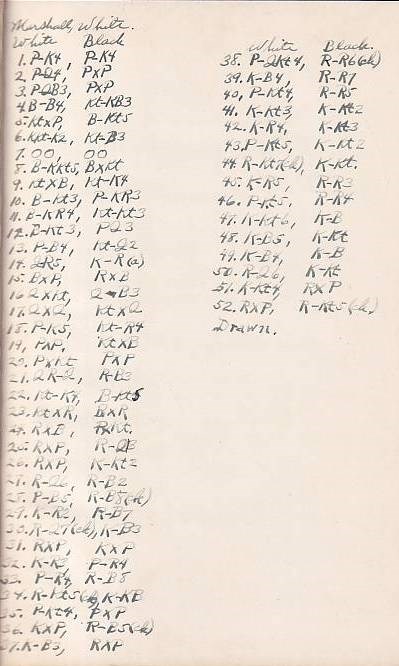 Marshall, White.
White Black
1. P-K4, P-K4
2. P-Q4, PxP
3. P-QB3, PxP
4. B-B4, Kt-KB3
5. KtxP, B-Kt5
6. KKt-K2, Kt-B3
7. OO, OO
8. B-KKt5, BxKt
9. KtxB, Kt-K4
10. B-Kt3, P-KR3
11. B-KR4, Kt-Kt3
12. B-Kt3, PQ3
13. P-B4, Kt-Q2
14. QR5, K-R(a)
15. BxP, RxB
16. QxKt, Q-B3
17. QxQ, KtxQ
18. P-K5, Kt-R4
19. PxP, KtxB
20. PxKt PxP
21. QR-Q, R-B3
22. Kt-K4, B-Kt5
23. KtxR, BxR
24. RxB, Kt.
25. RxP, R-QB
26. RxP, K-Kt2
27. R-Q6, R-B2
28. P-B5, R-B8(ch)
29. K-R2, R-B7
30. R-Q7(ch), K-B3
31. RXP, KXP
32. K-R3, P-R4
33. P-R4, R-B8
34. R-Kt5(ch), K-KB
35. P-Kt4, PXP
36. KXP, R-B5(ch)
37. K-B3, RXP
White Black.
38. P-QKt4, R-R6(ch)
39. K-B4, R-R7
40. P-Kt4, R-R5
41. K-Kt3, K-Kt2
42. K-R4, K-Kt3
43. P-Kt5, K-Kt2
44. R-Kt7(ch), K-Kt.
45. K-R5, R-R3
46. P-Kt5, R-R4
47. K-Kt6, K-B
48. K-B5, K-Kt
49. K-B4, K-B
50. R-Q6, K-Kt
51. K-Kt4, RXP
52. RXP, R-Kt5(ch)
Drawn.